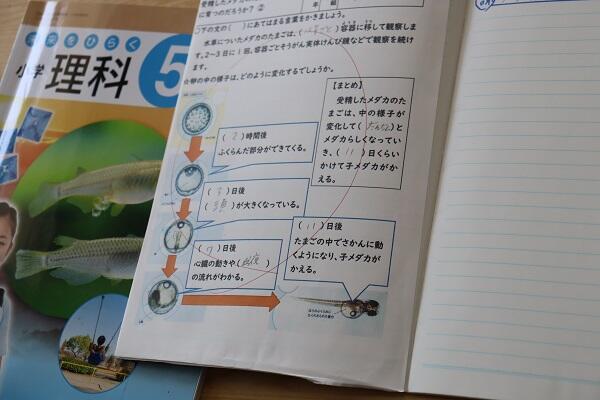 未来をひらく
小学
理科 5
に育つのだろうか？ ②
○下の文の（　）にあてはまる言葉をかきましょう。
水草についたメダカのたまごは、（　　　）容器に移して観察しま
す。2～3日に1回、容器ごとそうがん実体けんび鏡などで観察を続け
ます。
☆卵の中の様子は、どのように変化するでしょうか。
【まとめ】
受精したメダカのた
まごは、中の様子が
変化して（だんだん）と
メダカらしくなってい
き、（ 11 ）日くらい
かけて子メダカがか
える。
（ 2 ）時間後
ふくらんだ部分ができてくる。
（ 3 ）日後
（ 頭 ）が大きくなっている。
（ 7 ）日後
心臓の動きや（血液）
の流れがわかる。
（ 11 ）日後
たまごの中でさかんに動
くようになり、子メダカが
かえる。